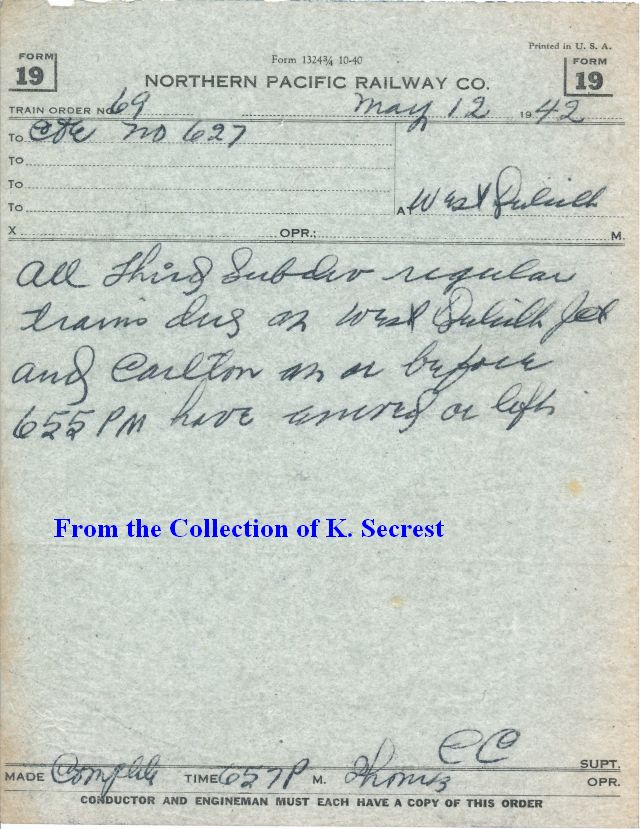 Printed in U. S. A.
FORM 19
Form 1324¾ 10-40
FORM 19
NORTHERN PACIFIC RAILWAY CO.
TRAIN ORDER NO 69 May 12 1942
TO C&E No 627
TO
TO
TO
AT West Duluth
X OPR.; M.
All Third Subdiv regular
trains due at West Duluth Jct
and Carlton at or before
655 PM have arrived or left
From the Collection of K. Secrest
CC SUPT.
MADE Complete TIME 657P M. Thomas OPR.
CONDUCTOR AND ENGINEMAN MUST EACH HAVE A COPY OF THIS ORDER